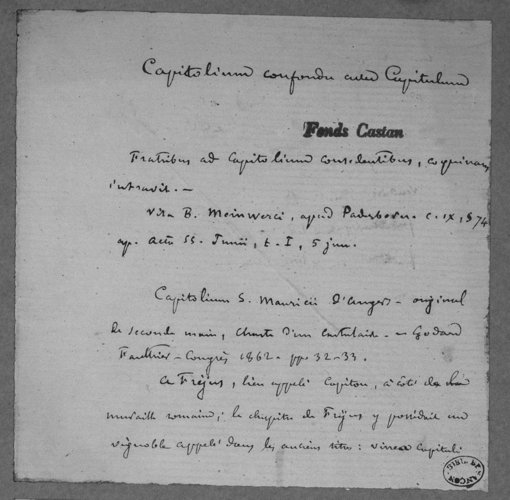 Capitolium confondu avec Capitulum
Fonds Castan
Fratribus ad Capitolium considentibus, coquinam
intravit. —
Vita B. Meinwerci, apud Paderborn. c. IX, § 74
ap. Acta SS. Junii, t. I, 5 jun.
Capitolium S. Mauricii d'Angers — original
de seconde main, charte d'un cartulaire. — Godard
Faultrier — Congrès 1862. pp. 32-33.
A Fréjus, lieu appelé Capitou, à côté de
muraille romaine; le chapitre de Fréjus y possédait un
vignoble appelé dans les anciens titres : vinea Capituli